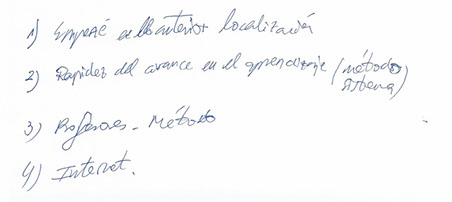 1) Empecé en la anterior localización
2) Rapidez del avance en el aprendizaje (método
sistema)
3) Profesores - Método
4) Internet.